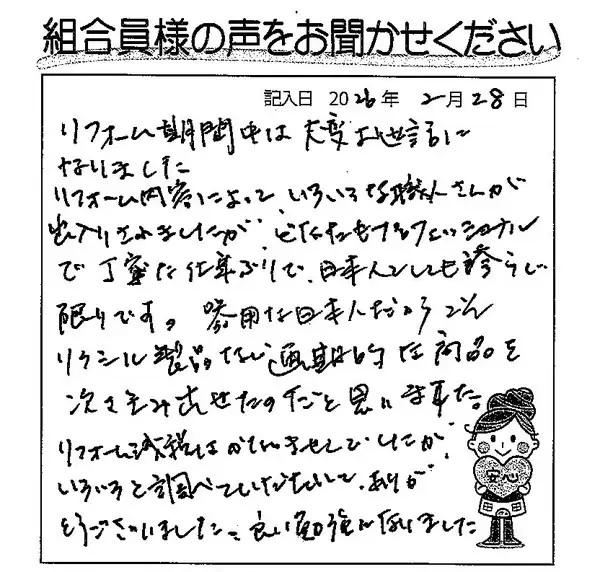 組合員様の声をお聞かせください
記入日 2026年 2月28日
リフォーム期間中は大変お世話に
なりました
リフォーム内容によって いろいろな職人さんが
出入りされましたが どなたもプロフェッショナル
で丁寧な仕事ぶりで、日本人としても誇らしい
限りです。器用な日本人だからこそ
リクシル製品など画期的な商品を
次々生み出せたのだと思いました。
リフォーム減税はかないませんでしたが、
いろいろと調べていただいて、ありが
とうございました。良い勉強になりました
安心